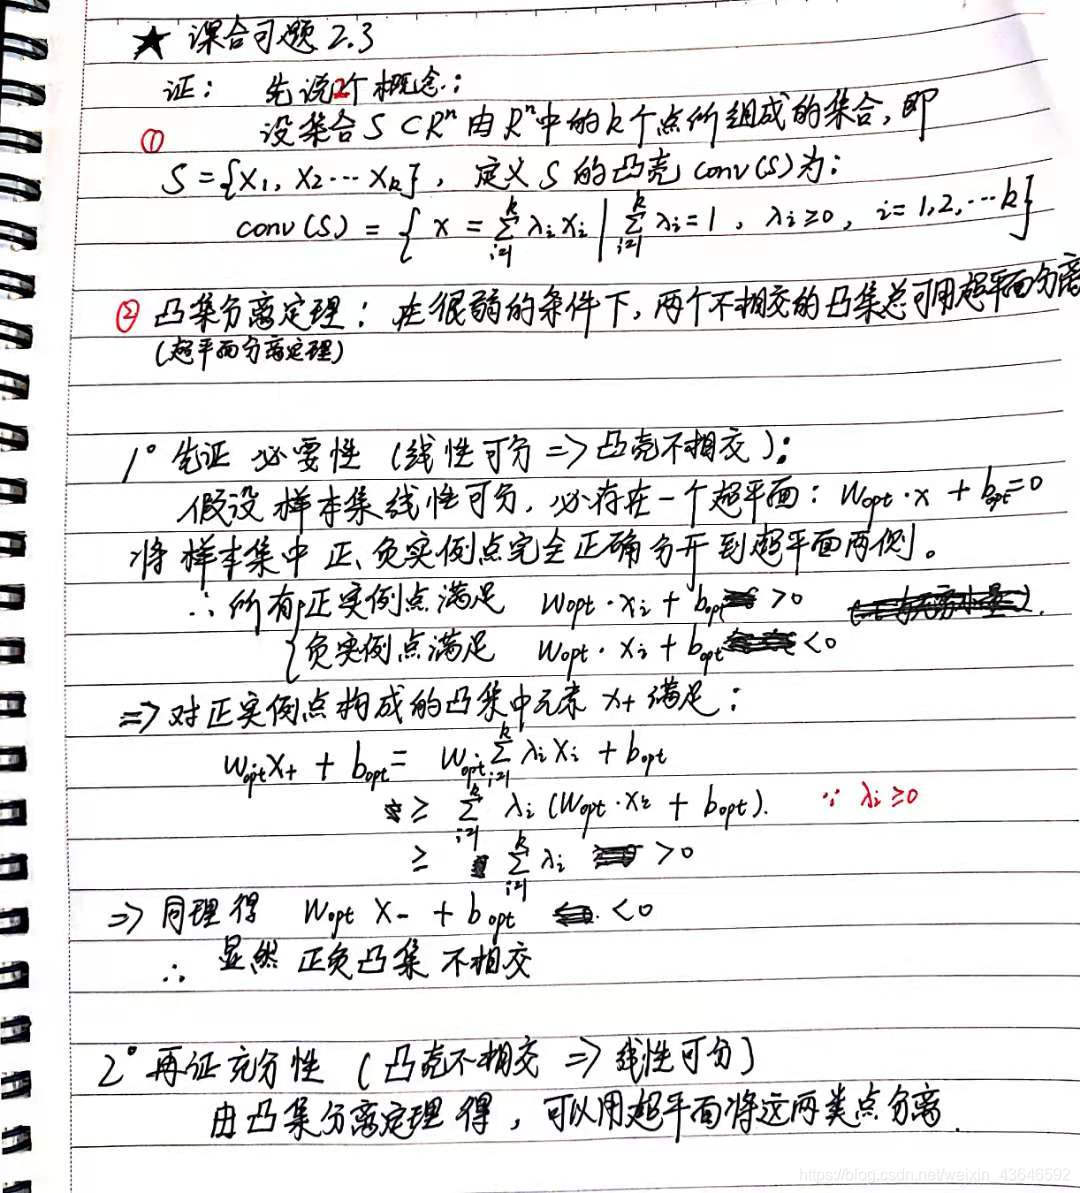 ★ 课后习题 2.3
证: 先说2个概念:
① 设集合 S⊂Rⁿ 由 Rⁿ中的k个点所组成的集合, 即
S = {x₁, x₂ ⋯ xₖ}, 定义 S 的凸壳 conv(S)为:
conv(S) = { x = ∑ᵢ₌₁ᵏ λᵢ xᵢ | ∑ᵢ₌₁ᵏ λᵢ = 1, λᵢ ≥ 0, i = 1,2,⋯k }
② 凸集分离定理: 在很弱的条件下, 两个不相交的凸集总可用超平面分离
(超平面分离定理)
1° 先证 必要性 (线性可分 => 凸壳不相交):
假设样本集线性可分, 必存在一个超平面: Wopt · x + bopt = 0
将样本集中 正、负实例点完全正确分开到超平面两侧。
∴ 所有{正实例点满足 Wopt · xᵢ + bopt > 0
负实例点满足 Wopt · xᵢ + bopt < 0
=> 对正实例点构成的凸集中元素 x₊ 满足:
Wopt·x₊ + bopt = Wopt·∑ᵢ₌₁ᵏ λᵢ xᵢ + bopt
≥ ∑ᵢ₌₁ᵏ λᵢ (Wopt · xᵢ + bopt). ∵ λᵢ ≥ 0
≥ ∑ᵢ₌₁ᵏ λᵢ > 0
=> 同理得 Wopt x₋ + bopt < 0
∴ 显然 正负凸集 不相交
2° 再证充分性 (凸壳不相交 => 线性可分)
由凸集分离定理得, 可以用超平面将这两类点分离.
https://blog.csdn.net/weixin_43646592